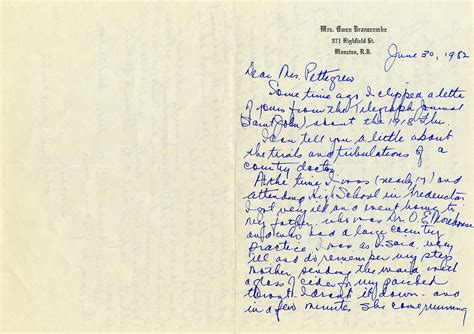 Mrs. Owen Branscombe
371 Highfield St.
Moncton, N.B.
June 30, 1982
Dear Mrs. Pettigrew
Some time ago I clipped a letter
of yours from the Telegraph Journal
(Saint John) about the 1918 Flu.
I can tell you a little about
the trials and tribulations of a
country doctor.
At the time I was (nearly 17) and
attending High School in Fredericton
I got very ill and went home to
my father, who was Dr. O. E. Morehouse
and who had a large country
practice. I was as I said, very
ill and do remember my step
mother sending the maid with
a glass of cider for my parched
throat. I drank it down - and
in a few minutes she came running